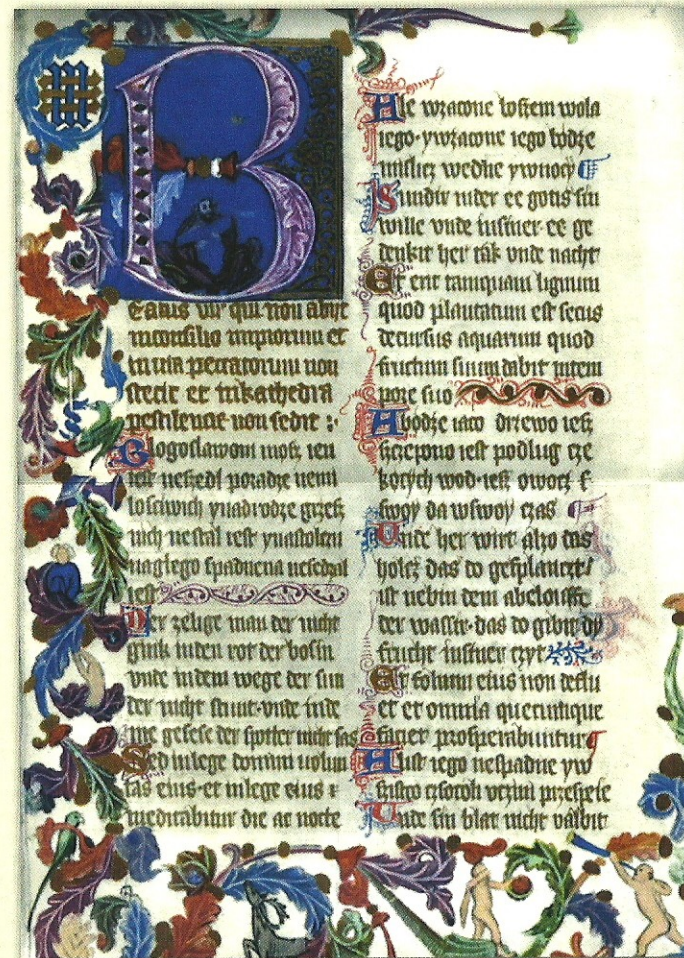 B
Eatus vir qui non abyt
inconsilio impiorum et
inuia peccatorum non
stetit et inkathedra
pestilencie non sedit :·
Blogoslawoni mosz ien
iese neszedl poradze nemi
losciwich ynadrodze grzesz
nich nestal iest ynastolcu
naglego spadnena nesedzal
iest
Der zelige man der nicht
gink inden rot der bosin
vnde indem wege der sun
der nicht stunt·vnde inde
me gesese der spotter nicht sas
Sed inlege domini uolun
tas eius·et inlege eius
meditabitur die ac nocte
Ale wzacone boszem wola
iego·ywzacone iego bodze
mislicz wedne ywnocy
Sundir inder ee gotis sin
wille vnde insiner·ee ge
denkit her tak vnde nacht
Et erit tamquam lignum
quod plantatum est secus
decursus aquarum quod
fructum suum dabit intem
pore suo
A bodze iaco drzewo iesz
szczepono iest podlug cze
kocych wod·iesz owocz
swoy da wswoy czas
Unde her wirt alzo das
holcz das do gesplanczt
ist nebin dem abelouffe
der wassir·das do gibit dy
frucht insiner czyt
Et folium eius non deflu
et et omnia quecumque
faciet prosperabuntur
A list iego nespadne yw
szistco czsocoli uczini przespeie
Unde sin blat nicht valbit